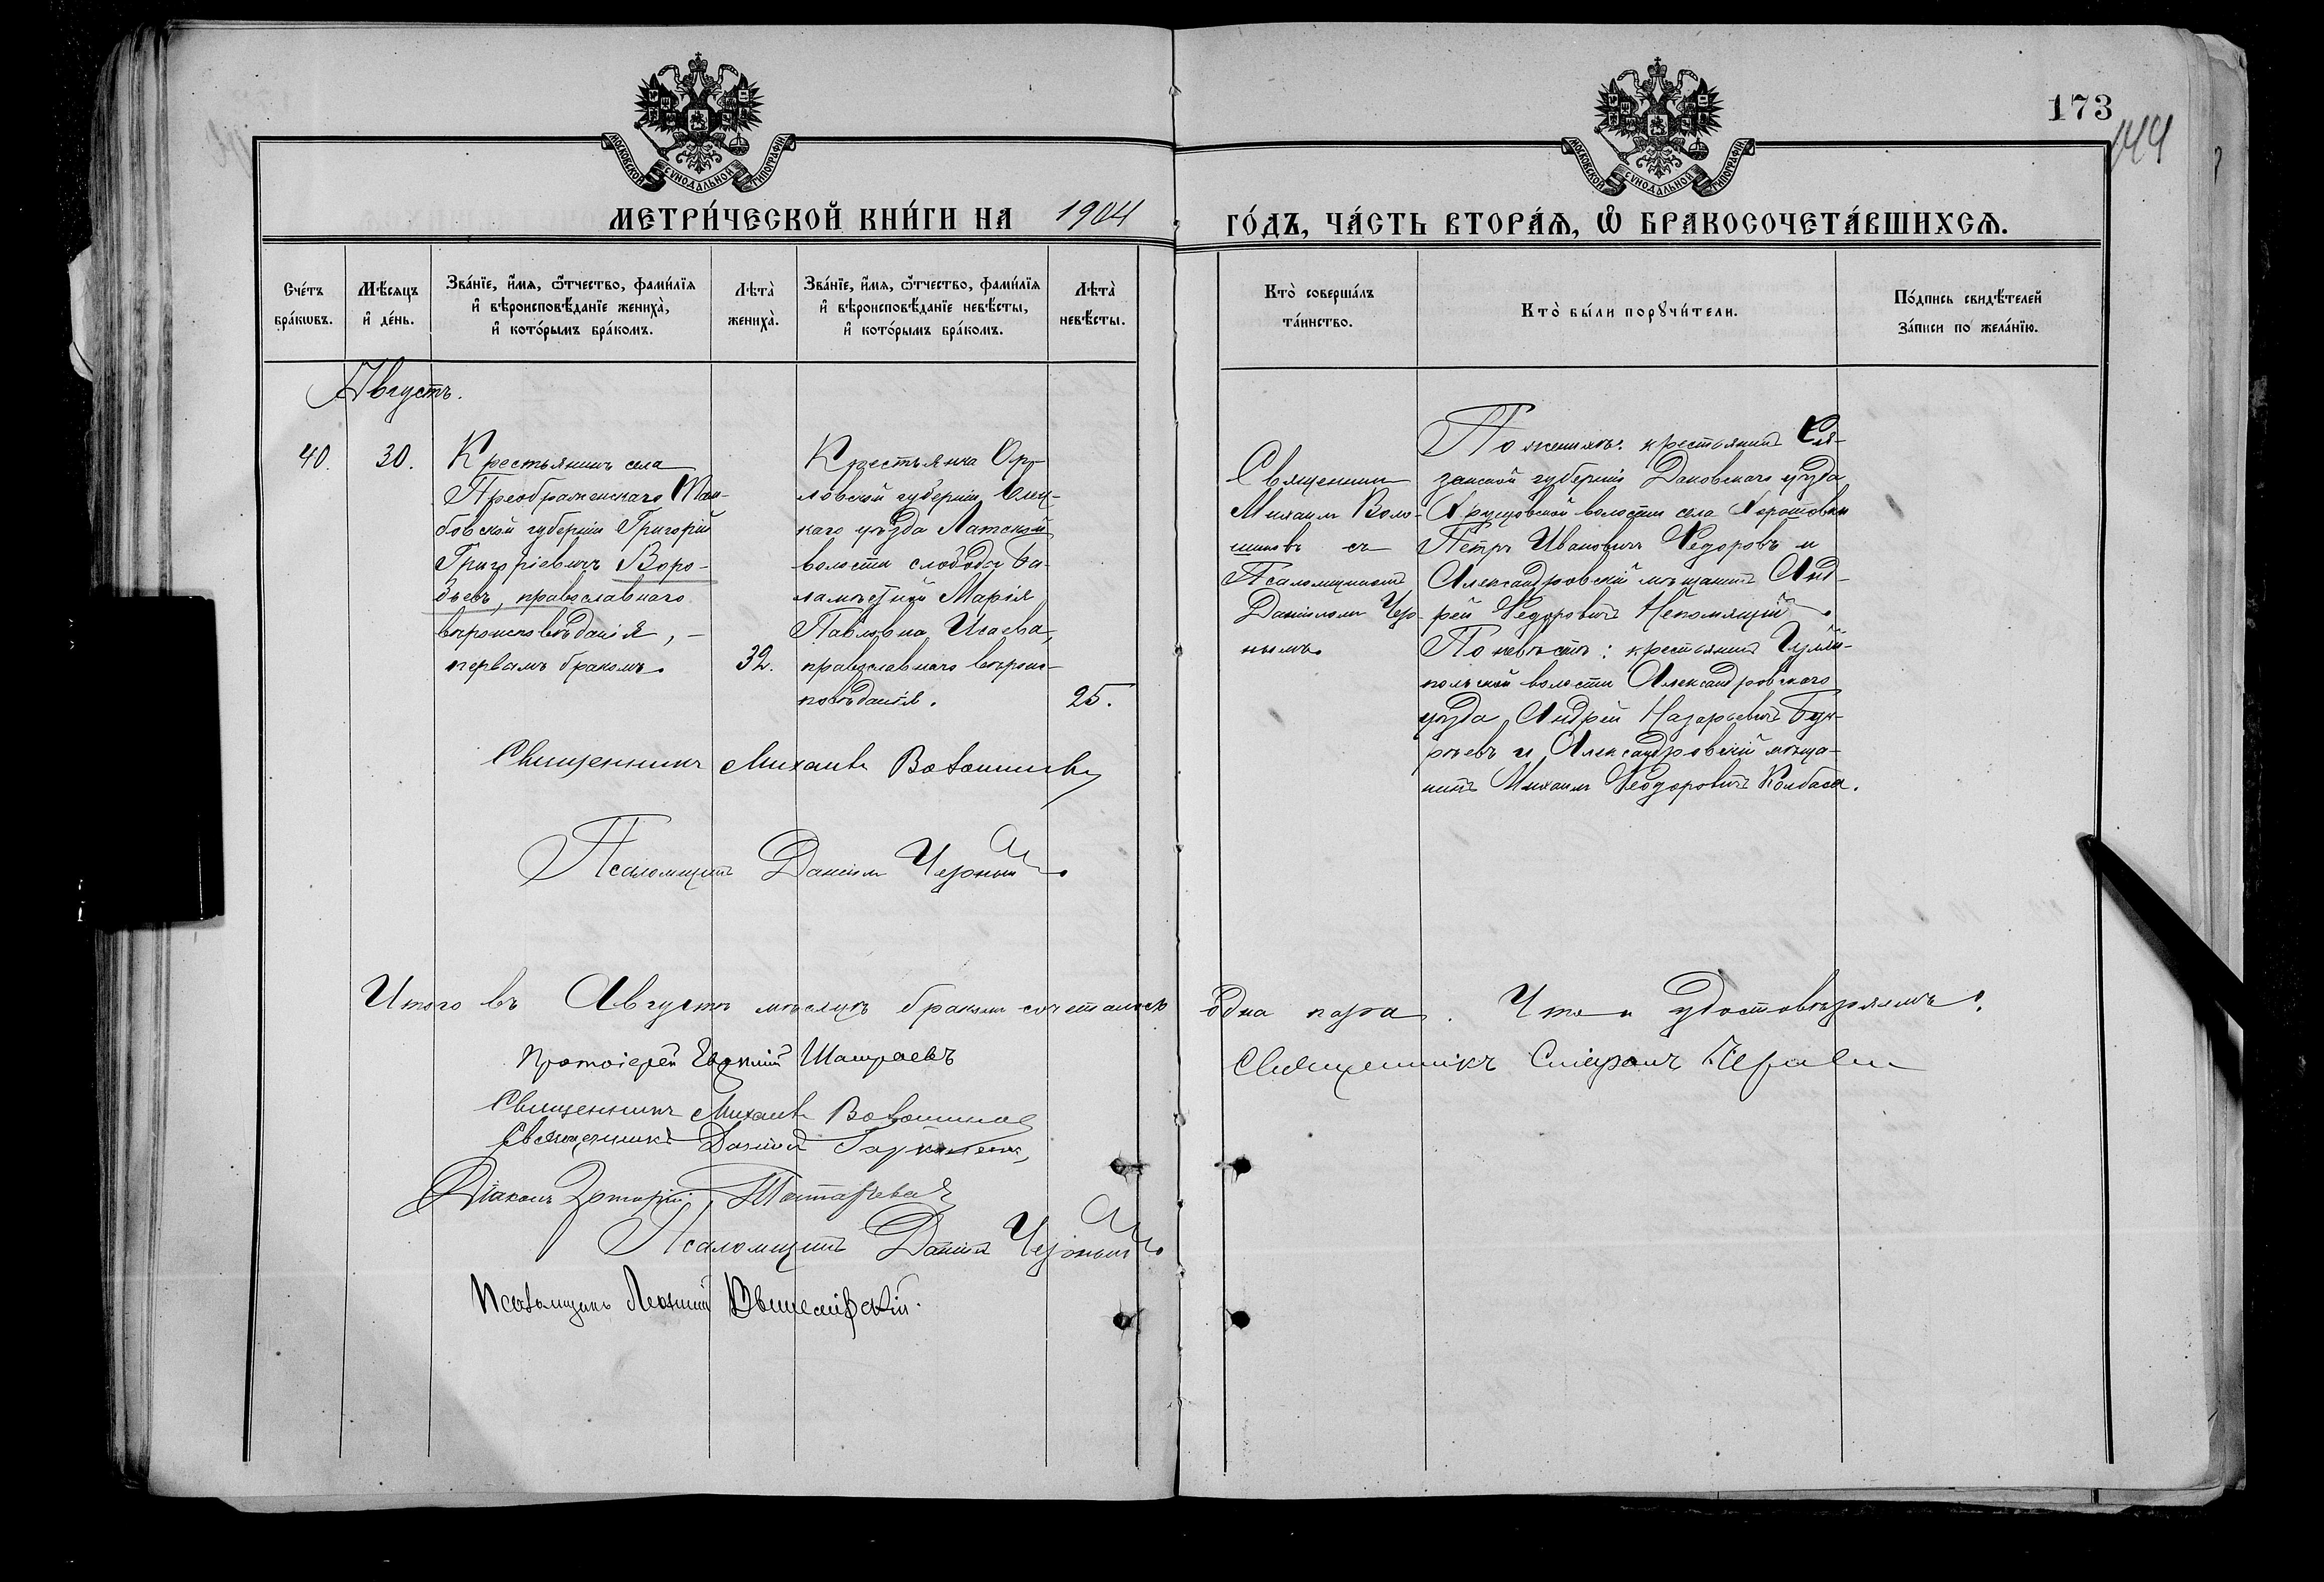 173
144
МОСКОВСКОЙ СѴНОДАЛЬНОЙ ТИПОГРАФІИ
МОСКОВСКОЙ СѴНОДАЛЬНОЙ ТИПОГРАФІИ
МЕТРИ́ЧЕСКОЙ КНИ́ГИ НА 1904 ГО́ДЪ, ЧА́СТЬ ВТОРА́Ѧ, Ѽ БРАКОСОЧЕТА́ВШИХСѦ.
Сче́тъ бра́кѡвъ.
Мѣ́сѧцъ и҆ де́нь.
Зва́нїе, и҆́мѧ, ѻ҆́тчество, фами́лїѧ
и҆ вѣроисповѣ́данїе жениха̀,
и҆ кото́рымъ бра́комъ.
Лѣта̀ жениха̀.
Зва́нїе, и҆́мѧ, ѻ҆́тчество, фами́лїѧ
и҆ вѣроисповѣ́данїе невѣ́сты,
и҆ кото́рымъ бра́комъ.
Лѣта̀ невѣ́сты.
Кто̀ соверша́лъ
та́инство.
Кто̀ бы́ли порꙋчи́тели.
По́дпись свидѣ́телей
за́писи по жела́нїю.
Августъ.
40.
30.
Крестьянинъ села
Преображенскаго Там-
бовской губерніи Григорій
Григоріевичъ Воро-
бьевъ, православнаго
вѣроисповѣданія, –
первымъ бракомъ.
32.
Крестьянка Ор-
ловской губерніи Елец-
каго уѣзда Ламской
волости слободы
Марія
Павловна Исаева,
православнаго вѣроис-
повѣданія.
25.
Священник
Михаил Воло-
шиновъ съ
Псаломщикомъ
Даніилом Чер-
нымъ.
По женихѣ: крестьянинъ Ря-
занской губерніи Данковскаго уѣзда
Хрущовской волости села
Петръ Ивановичъ Федоровъ и
Александровскій мѣщанинъ Анд-
рей Федоровичъ Непомящій.
По невѣстѣ: крестьянинъ Гуляй-
польской волости Александровскаго
уѣзда Андрей Назарьевичъ
и Александровскій мѣща-
нинъ Михаил Феодоровичъ Колбаса.
Священникъ Михаилъ Волошиновъ
Псаломщикъ Даніил Черный.
Итого въ Августѣ мѣсяцѣ бракомъ сочеталась одна пара. Что и удостовѣряемъ:
Протоіерей
Священникъ
Священникъ Михаилъ Волошиновъ
Священникъ Даніил
Діаконъ
Псаломщикъ Даніил Черный.
Псаломщикъ